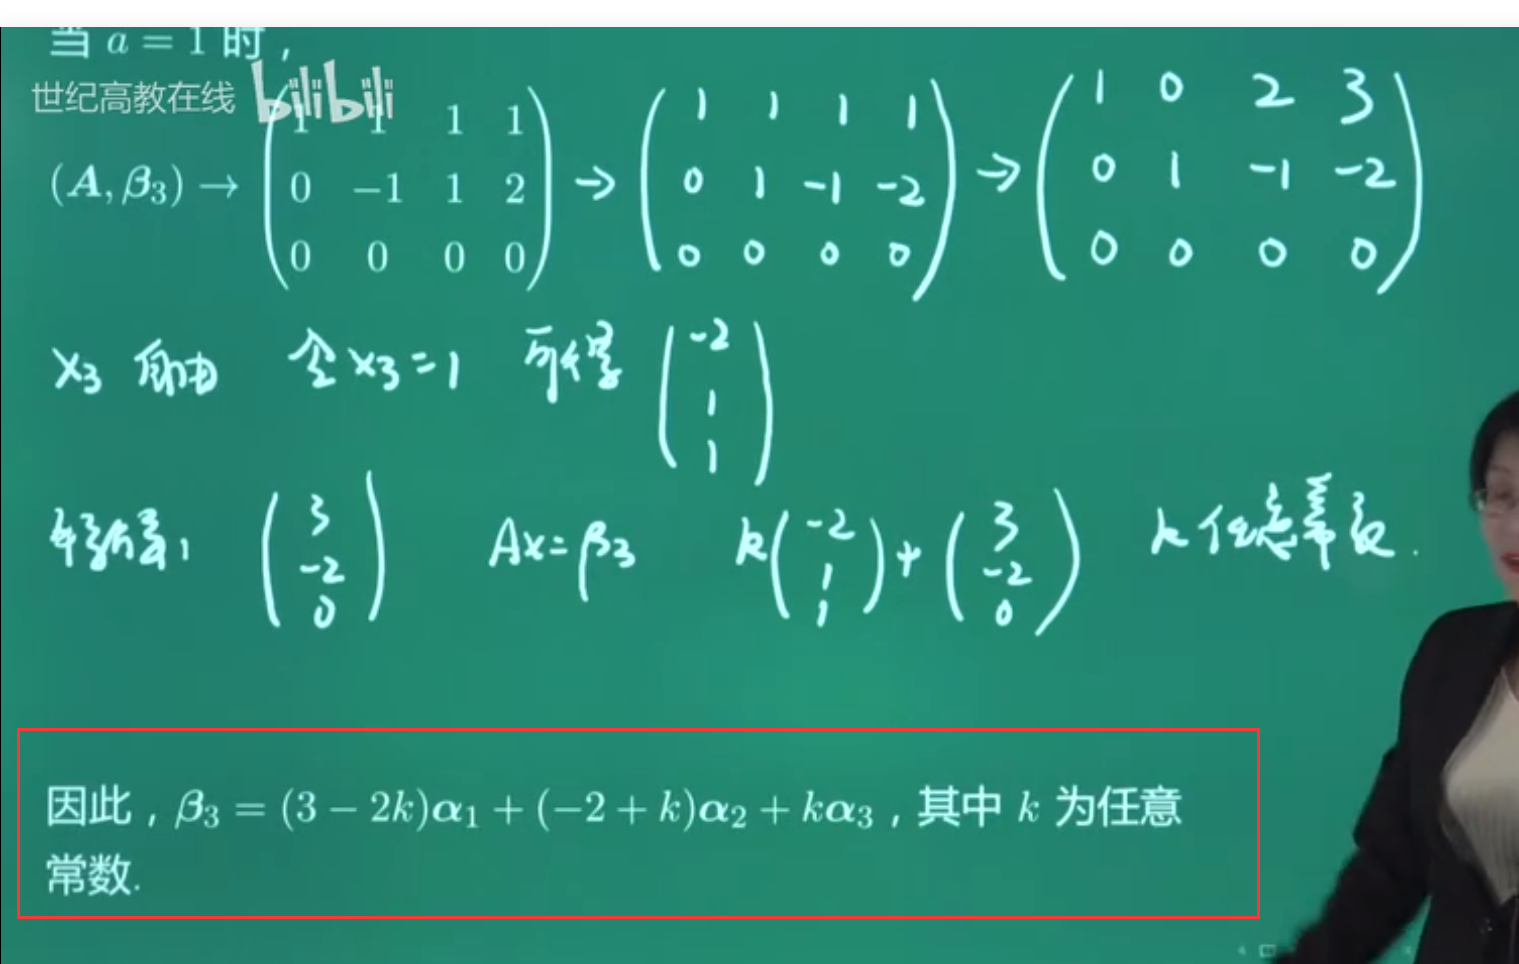 当 a = 1 时，
世纪高教在线 bilibili
(A, β₃) → (1 1 1 1 → (1 1 1 1 → (1 0 2 3
0 −1 1 2) 0 1 -1 -2) 0 1 -1 -2)
0 0 0 0 0 0 0 0 0 0 0 0
x₃ 自由 令 x₃ = 1 可得 (-2 1 1)
特解: (3 -2 0) Ax = β₃ k(-2 1 1) + (3 -2 0) k 任意常数.
因此，β₃ = (3 − 2k)α₁ + (−2 + k)α₂ + kα₃，其中 k 为任意
常数.